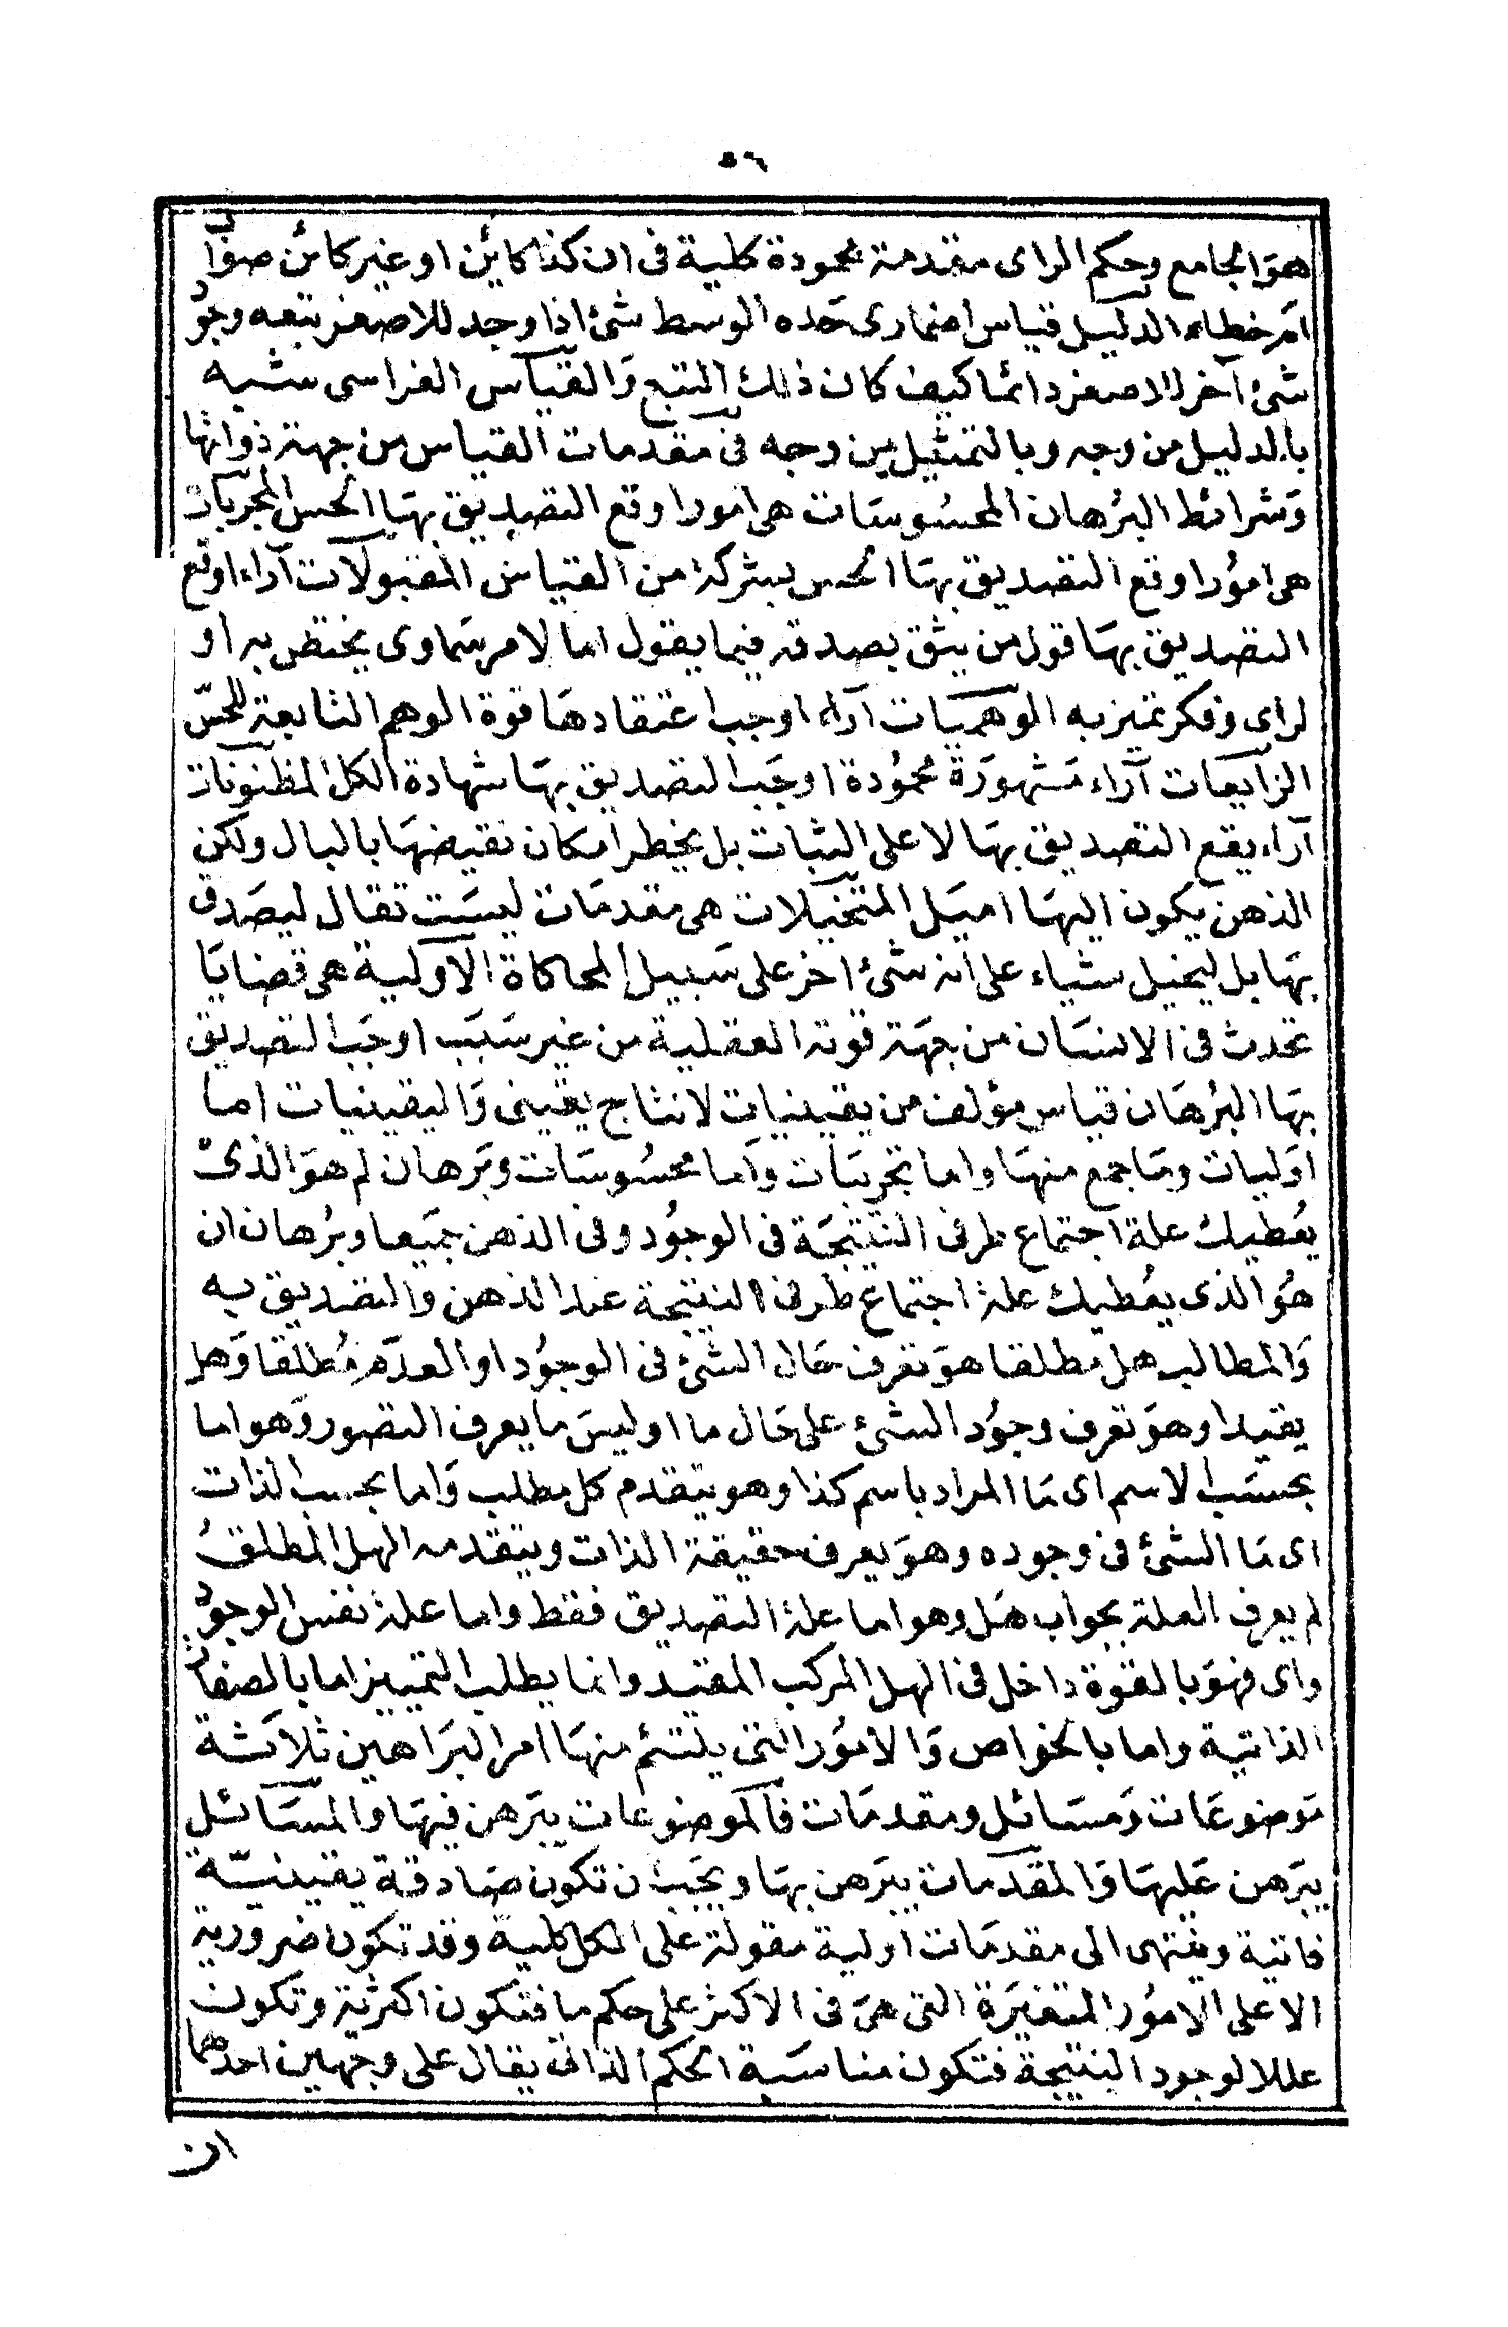 ٥٦
هو الجامع وحكم الراى مقدمة محمودة كلية فى ان كذا كائن او غير كائن صوابا
ام خطاء الدليل قياس اضمارى حده الوسط شئ اذا وجد للاصغر يتبعه وجود
شئ آخر للاصغر دائما كيف كان ذلك التبع والقياس الفراسى شبيه
بالدليل من وجه وبالتمثيل من وجه فى مقدمات القياس من جهة ذواتها
وشرائط البرهان المحسوسات هى امور اوقع التصديق بها الحس المجربات
هى امور اوقع التصديق بها الحس بشركة من القياس المقبولات آراء اوقع
التصديق بها قول من يثق بصدقه فيما يقول اما لامر سماوى يختص به او
لراى وفكر تميز به الوهميات آراء اوجب اعتقادها قوة الوهم التابعة للحس
الزايعات آراء مشهورة محمودة اوجب التصديق بها شهادة الكل المظنونات
آراء يقع التصديق بها لا على الثبات بل يخطر امكان نقيضها بالبال ولكن
الذهن يكون اليها اميل المتخيلات هى مقدمات ليست تقال ليصدق
بها بل ليخيل شياء على انه شئ اخر على سبيل المحاكاة الاولية هى قضايا
تحدث فى الانسان من جهة قوته العقلية من غير سبب اوجب التصديق
بها البرهان قياس مؤلف من يقينيات لانتاج يقينى واليقينيات اما
اوليات وما جمع منها واما تجربيات واما محسوسات وبرهان لم هو الذى
يعطيك علة اجتماع طرفى النتيجة فى الوجود وفى الذهن جميعا وبرهان ان
هو الذى يعطيك علة اجتماع طرفى النتيجة عند الذهن والتصديق به
والمطالب هل مطلقا هو تعرف حال الشئ فى الوجود او العدم مطلقا وهل
يقيد اوهو تعرف وجود الشئ على حال ما اوليس ما يعرف التصور وهو اما
بحسب الاسم اى ما المراد باسم كذا وهو يتقدم كل مطلب واما بحسب الذات
اى ما الشئ فى وجوده وهو يعرف حقيقة الذات ويتقدمه الهل المطلق
لم يعرف العلة بجواب هل وهو اما علة التصديق فقط واما علة نفس الوجود
واى فهو بالقوة داخل فى الهل المركب المقيد وانما يطلب التمييز اما بالصفات
الذاتية واما بالخواص والامور التى يلتئم منها امر البراهين ثلاثة
موضوعات ومسائل ومقدمات فالموضوعات يبرهن فيها والمسائل
يبرهن عليها والمقدمات يبرهن بها ويجب ان تكون صادقة يقينية
ذاتية وينتهى الى مقدمات اولية مقولة على الكل كلية وقد تكون ضرورية
الا على الامور المتغيرة التى هى فى الاكثر على حكم ما فتكون اكثرية وتكون
عللا لوجود النتيجة فتكون مناسبة الحكم الذاتى يقال على وجهين احدهما
ان